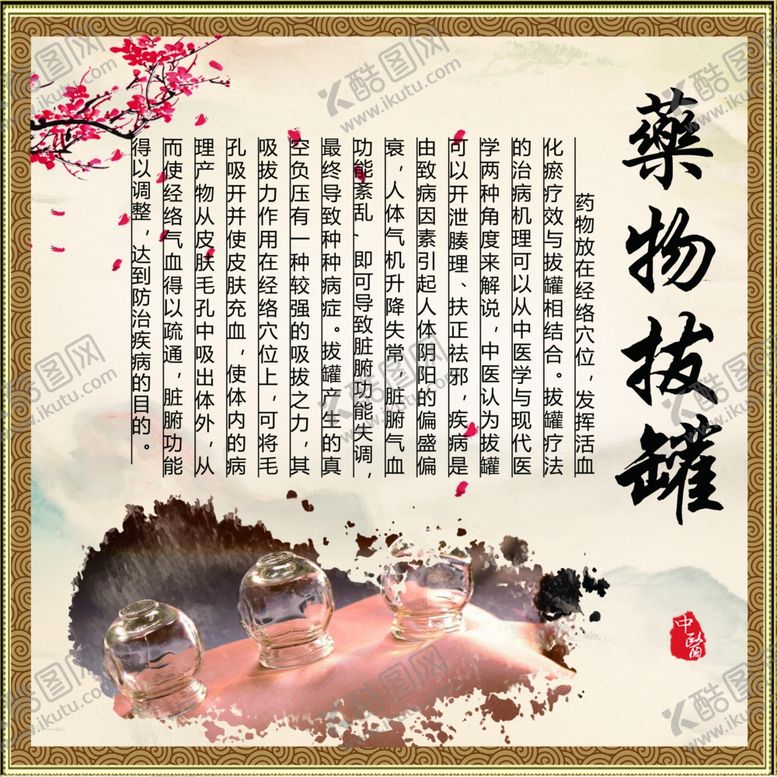 藥物拔罐
药物放在经络穴位，发挥活血
化瘀疗效与拔罐相结合。拔罐疗法
的治病机理可以从中医学与现代医
学两种角度来解说，中医认为拔罐
可以开泄腠理、扶正祛邪，疾病是
由致病因素引起人体阴阳的偏盛偏
衰，人体气机升降失常，脏腑气血
功能紊乱、即可导致脏腑功能失调，
最终导致种种病症。拔罐产生的真
空负压有一种较强的吸拔之力，其
吸拔力作用在经络穴位上，可将毛
孔吸开并使皮肤充血，使体内的病
理产物从皮肤毛孔中吸出体外，从
而使经络气血得以疏通，脏腑功能
得以调整，达到防治疾病的目的。
中醫
酷图网
www.ikutu.com